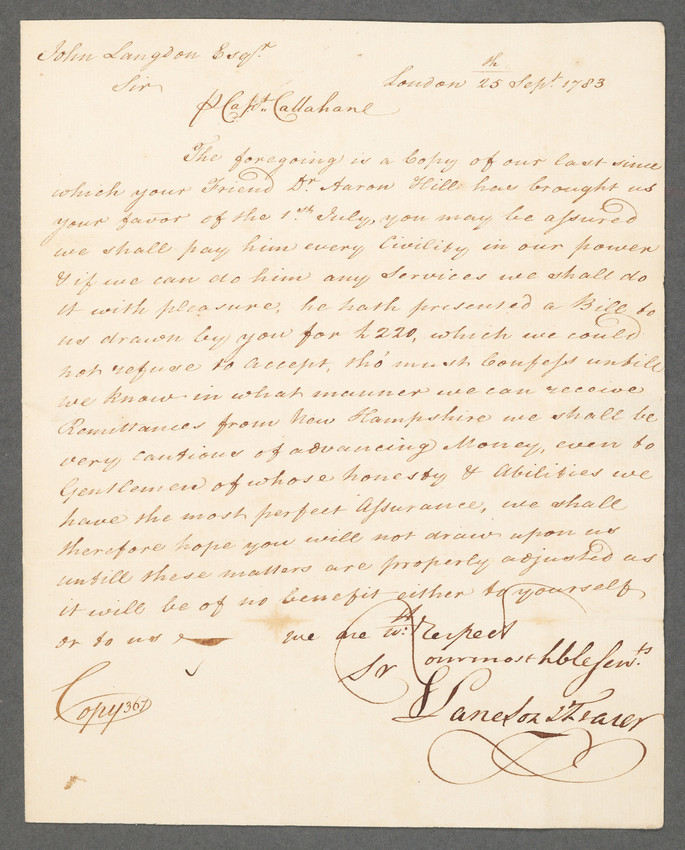 John Langdon Esqr.
London 25th Sept. 1783
Sir
⅌ Capt. Callahane
The foregoing is a Copy of our last since
which your Friend Dr Aaron Hill has brought us
your favor of the 1.st July, you may be assured
we shall pay him every Civility in our power
& if we can do him any Services we shall do
it with pleasure, he hath presented a Bill to
us drawn by you for £220, which we could
not refuse to accept, tho' must Confess untill
we know in what manner we can receive
Remittances from New Hampshire we shall be
very cautious of advancing Money, even to
Gentlemen of whose honesty & Abilities we
have the most perfect Assurance, we shall
therefore hope you will not draw upon us
untill these matters are properly adjusted as
it will be of no benefit either to yourself
or to us we are wth: Respect
Sr Your most hble Serv.ts
Copy 367
Lane Son & Fraser